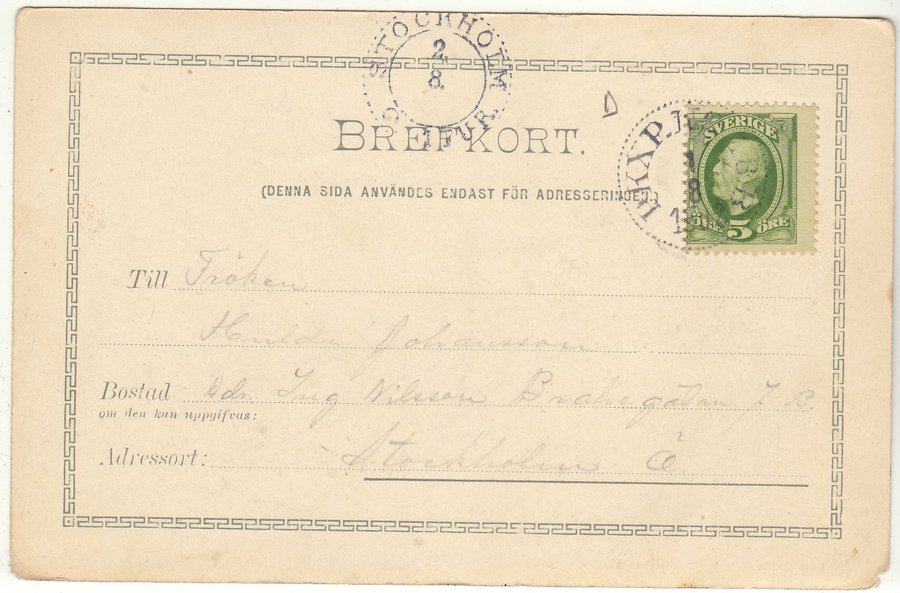 STOCKHOLM
2
8.
1 TUR
BREFKORT.
(DENNA SIDA ANVÄNDES ENDAST FÖR ADRESSERINGEN.)
PKXP. N
1
8
SVERIGE
5 ÖRE
Till Fröken
Hulda Johansson
Bostad Adr. Ing Nilsson Brahegatan 7 B.
om den kan uppgifvas:
Adressort: Stockholm Ö